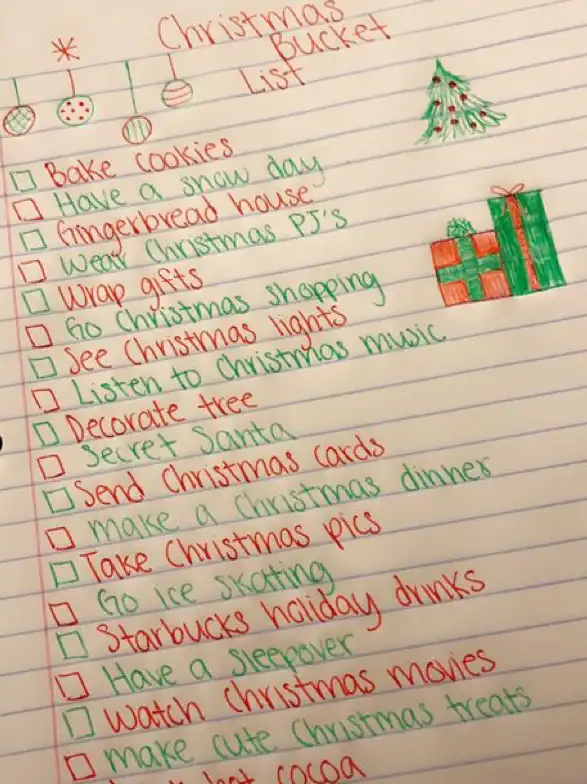 Christmas
Bucket
List
Bake cookies
Have a snow day
Gingerbread house
Wear Christmas PJ's
Wrap gifts
Go Christmas shopping
See Christmas lights
Listen to christmas music
Decorate tree
Secret Santa
Send Christmas cards
make a christmas dinner
Take Christmas pics
Go ice skating
Starbucks holiday drinks
Have a sleepover
Watch christmas movies
make cute Christmas treats
hot cocoa